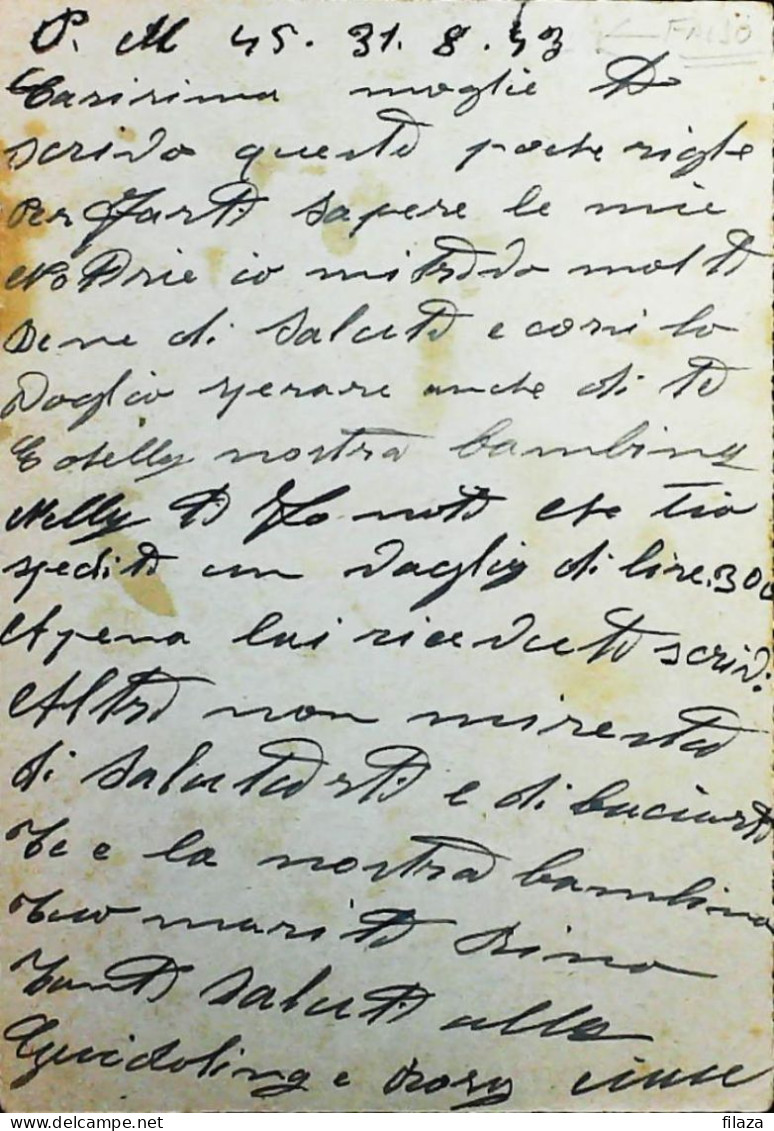 P. M 45. 31. 8. 43
FALSO
Carisima moglie Ti
scrivo queste poche righe
Per farti sapere le mie
Notizie io mi trovo molto
bene di salute e cosi lo
voglio sperare anche di te
E nostra bambina
Nelly Ti fo noto che Tio
spedito un vaglia di lire. 300
Apena lai ricevuto scrivi
Altro non miresta
di salutarti e di baciarti
Te e la nostra bambina
Tuo marito
Tanti saluti alla
e
filaza